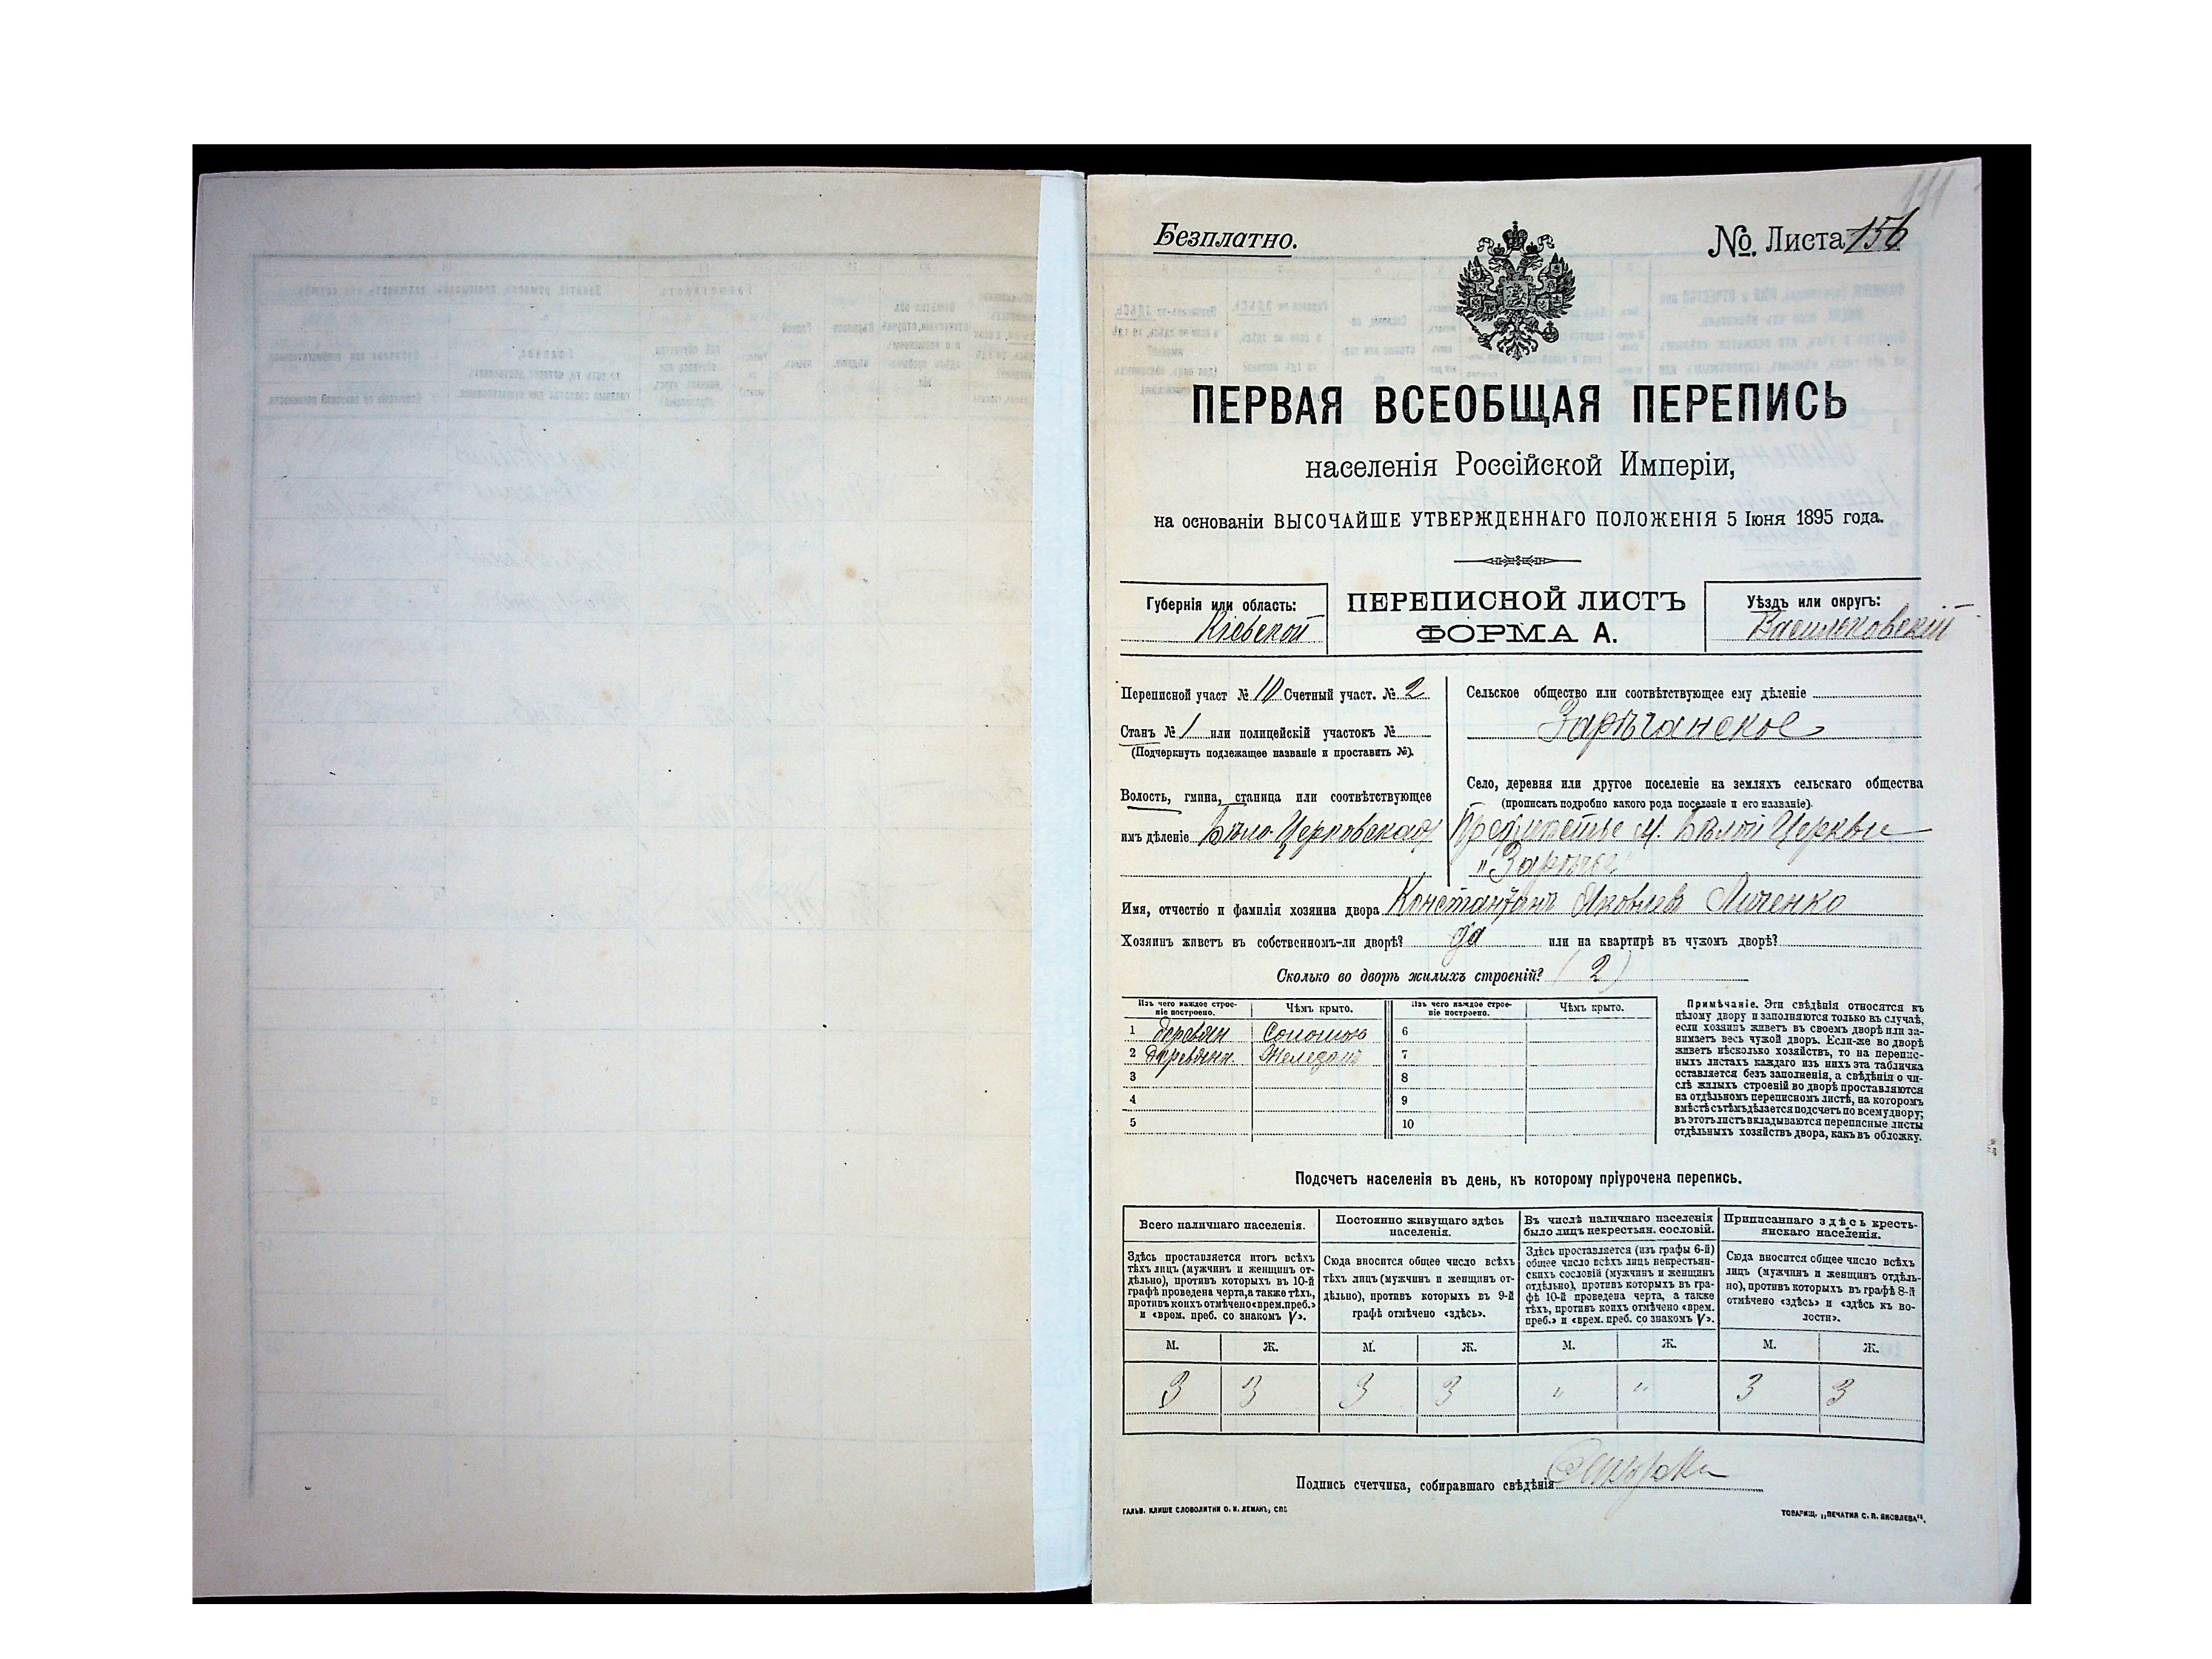 111
Безплатно.
№ Листа 156
ПЕРВАЯ ВСЕОБЩАЯ ПЕРЕПИСЬ
населенія Россійской Имперіи,
на основаніи ВЫСОЧАЙШЕ УТВЕРЖДЕННАГО ПОЛОЖЕНІЯ 5 Іюня 1895 года.
Губернія или область:
Кіевской
ПЕРЕПИСНОЙ ЛИСТЪ
ФОРМА А.
Уѣздъ или округъ:
Васильковскій
Переписной участ № 10 Счетный участ. № 2
Станъ № 1 или полицейскій участокъ №
(Подчеркнуть подлежащее названіе и проставить №).
Волость, гмина, станица или соотвѣтствующее
имъ дѣленіе Бѣло-Церковская
Сельское общество или соотвѣтствующее ему дѣленіе
Зарѣчанское
Село, деревня или другое поселеніе на земляхъ сельскаго общества
(прописать подробно какого рода поселеніе и его названіе).
Предмѣстье м. Бѣлой Церкви
"Зарѣчье"
Имя, отчество и фамилія хозяина двора Константинъ Яковлевъ
Хозяинъ живетъ въ собственномъ-ли дворѣ? да или на квартирѣ въ чужомъ дворѣ?
Сколько во дворѣ жилыхъ строеній? (2)
Изъ чего каждое строе-
ніе построено.
Чѣмъ крыто.
Изъ чего каждое строе-
ніе построено.
Чѣмъ крыто.
1 деревян Соломою 6
2 деревянн. 7
3 8
4 9
5 10
Примѣчаніе. Эти свѣдѣнія относятся къ
цѣлому двору и заполняются только въ случаѣ,
если хозяинъ живетъ въ своемъ дворѣ или за-
нимаетъ весь чужой дворъ. Если-же во дворѣ
живетъ нѣсколько хозяйствъ, то на перепис-
ныхъ листахъ каждаго изъ нихъ эта табличка
оставляется безъ заполненія, а свѣдѣнія о чи-
слѣ жилыхъ строеній во дворѣ проставляются
на отдѣльномъ переписномъ листѣ, на которомъ
вмѣстѣ съ тѣмъ дѣлается подсчетъ по всему двору;
въ этотъ листъ вкладываются переписные листы
отдѣльныхъ хозяйствъ двора, какъ въ обложку.
Подсчетъ населенія въ день, къ которому пріурочена перепись.
Всего наличнаго населенія.
Здѣсь проставляется итогъ всѣхъ
тѣхъ лицъ (мужчинъ и женщинъ от-
дѣльно), противъ которыхъ въ 10-й
графѣ проведена черта, а также тѣхъ,
противъ коихъ отмѣчено «врем. преб.»
и «врем. преб. со знакомъ V».
Постоянно живущаго здѣсь
населенія.
Сюда вносится общее число всѣхъ
тѣхъ лицъ (мужчинъ и женщинъ от-
дѣльно), противъ которыхъ въ 9-й
графѣ отмѣчено «здѣсь».
Въ числѣ наличнаго населенія
было лицъ некрестьян. сословій.
Здѣсь проставляется (изъ графы 6-й)
общее число всѣхъ лицъ некрестьян-
скихъ сословій (мужчинъ и женщинъ
отдѣльно), противъ которыхъ въ гра-
фѣ 10-й проведена черта, а также
тѣхъ, противъ коихъ отмѣчено «врем.
преб.» и «врем. преб. со знакомъ V».
Приписаннаго здѣсь кресть-
янскаго населенія.
Сюда вносится общее число всѣхъ
лицъ (мужчинъ и женщинъ отдѣль-
но), противъ которыхъ въ графѣ 8-й
отмѣчено «здѣсь» и «здѣсь къ во-
лости».
М. Ж. М. Ж. М. Ж. М. Ж.
3 3 3 3 " " 3 3
Подпись счетчика, собиравшаго свѣдѣнія
ГАЛЬВ. КЛИШЕ СЛОВОЛИТНИ О. И. ЛЕМАНЪ, СПБ
ТОВАРИЩ. „ПЕЧАТНЯ С. П. ЯКОВЛЕВА".